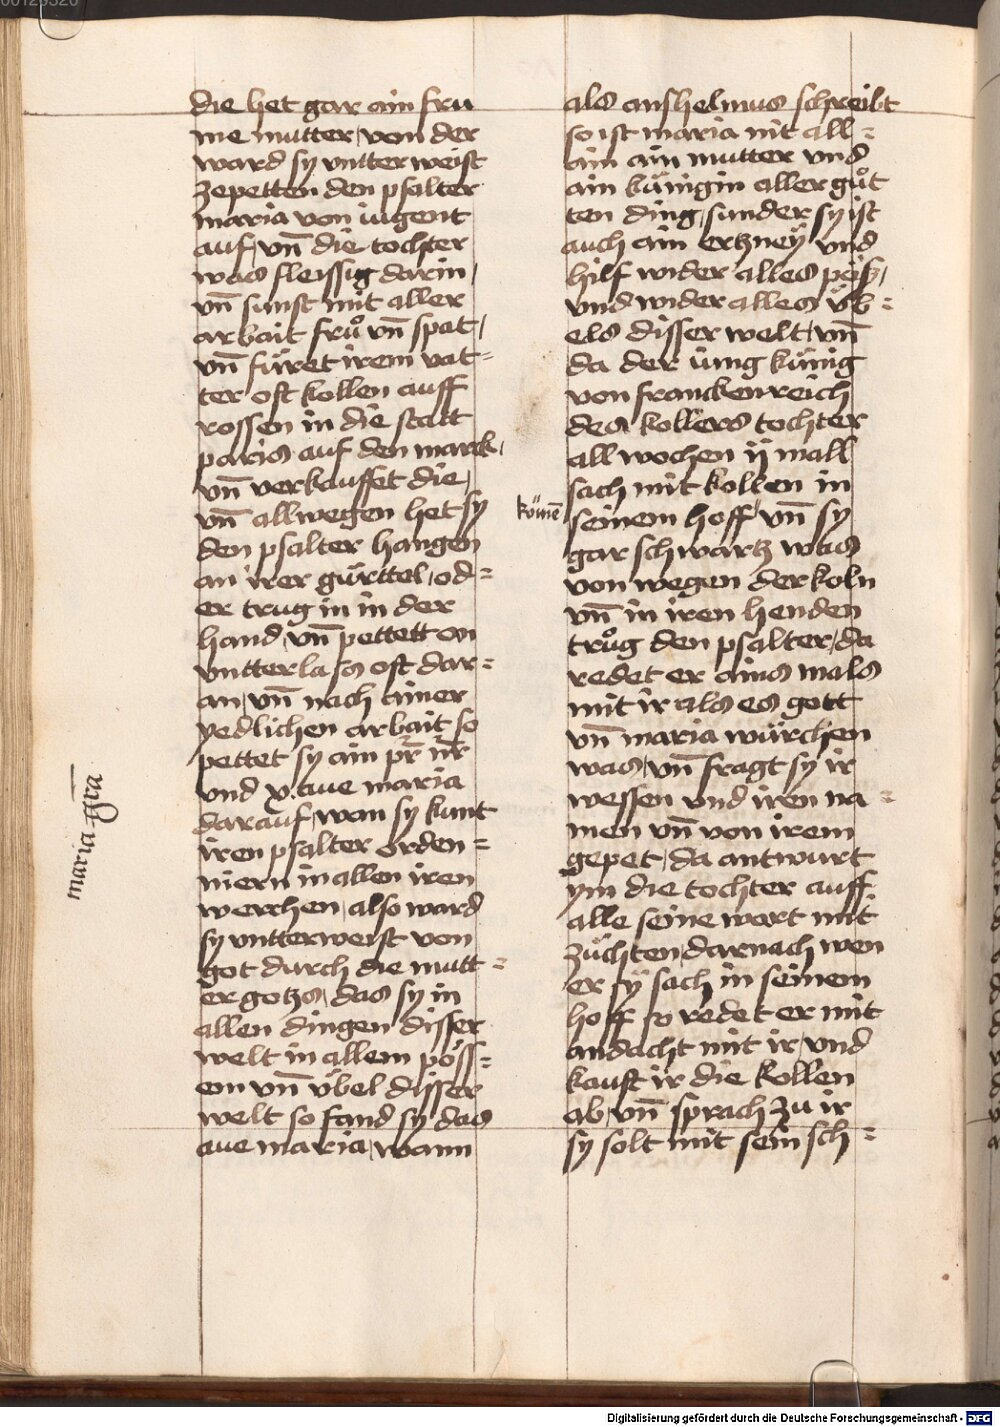 die het gar ain fru
me mutter, von der
ward sy vntterweist
zepetten den psalter
maria von iugent
auf, vn̄ die tochter
was fleissig darin,
vn̄ sunst mit aller
arbait frůͦ vn̄ spat,
vn̄ füret irem vat=
ter oft kollen auff
rossen in die statt
paris auf den marck,
vn̄ verkauffet die,
vn̄ allwegen het sy
den psalter hangen
an irer gürttel, od=
er trug in in der
hand, vn̄ pettett on
vntterlass oft dar=
an, vn̄ nach ainer
yedlichen arbait so
pettet sy ain pr̄ nr̄
vnd x. aue maria
darauf, wan sy kunt
iren psalter orden=
niern in allen iren
werchen, also ward
sy vntterweist von
got durch die mutt=
er gotzs, das sy in
allen dingen disser
welt in allem pöss=
em vn̄ übel disser
welt so fand sy das
aue maria, wann
maria gr̄a
als anshelmus schreibt
so ist maria nit all=
ain ain mutter vnd
ain künigin aller gůt
ten ding, sunder sy ist
auch ain ertzneÿ vnd
hilf wider alles pöß,
vnd wider alles üb=
els disser welt, vn̄
da der iung künig
von franckenreich
des kollers tochter
all wochen ij mall
sach mit kollen in
kömē
seinem hoff, vn̄ sy
gar schwartz was
von wegen der koln
vn̄ in iren henden
trůg den psalter, da
redet er ains mals
mit ir als es gott
vn̄ maria würchen
was, vn̄ fragt sy ir
wessen vnd iren na=
men vn̄ von irem
gepet, da antwurt
ym die tochter auff
alle seine wort mit
züchten, darnach wen
er sÿ sach in seinem
hoff so redet er mit
andacht mit ir, vnd
kauft ir die kollen
ab, vn̄ sprach zu ir
sy solt mit sein sch=
Digitalisierung gefördert durch die Deutsche Forschungsgemeinschaft - DFG